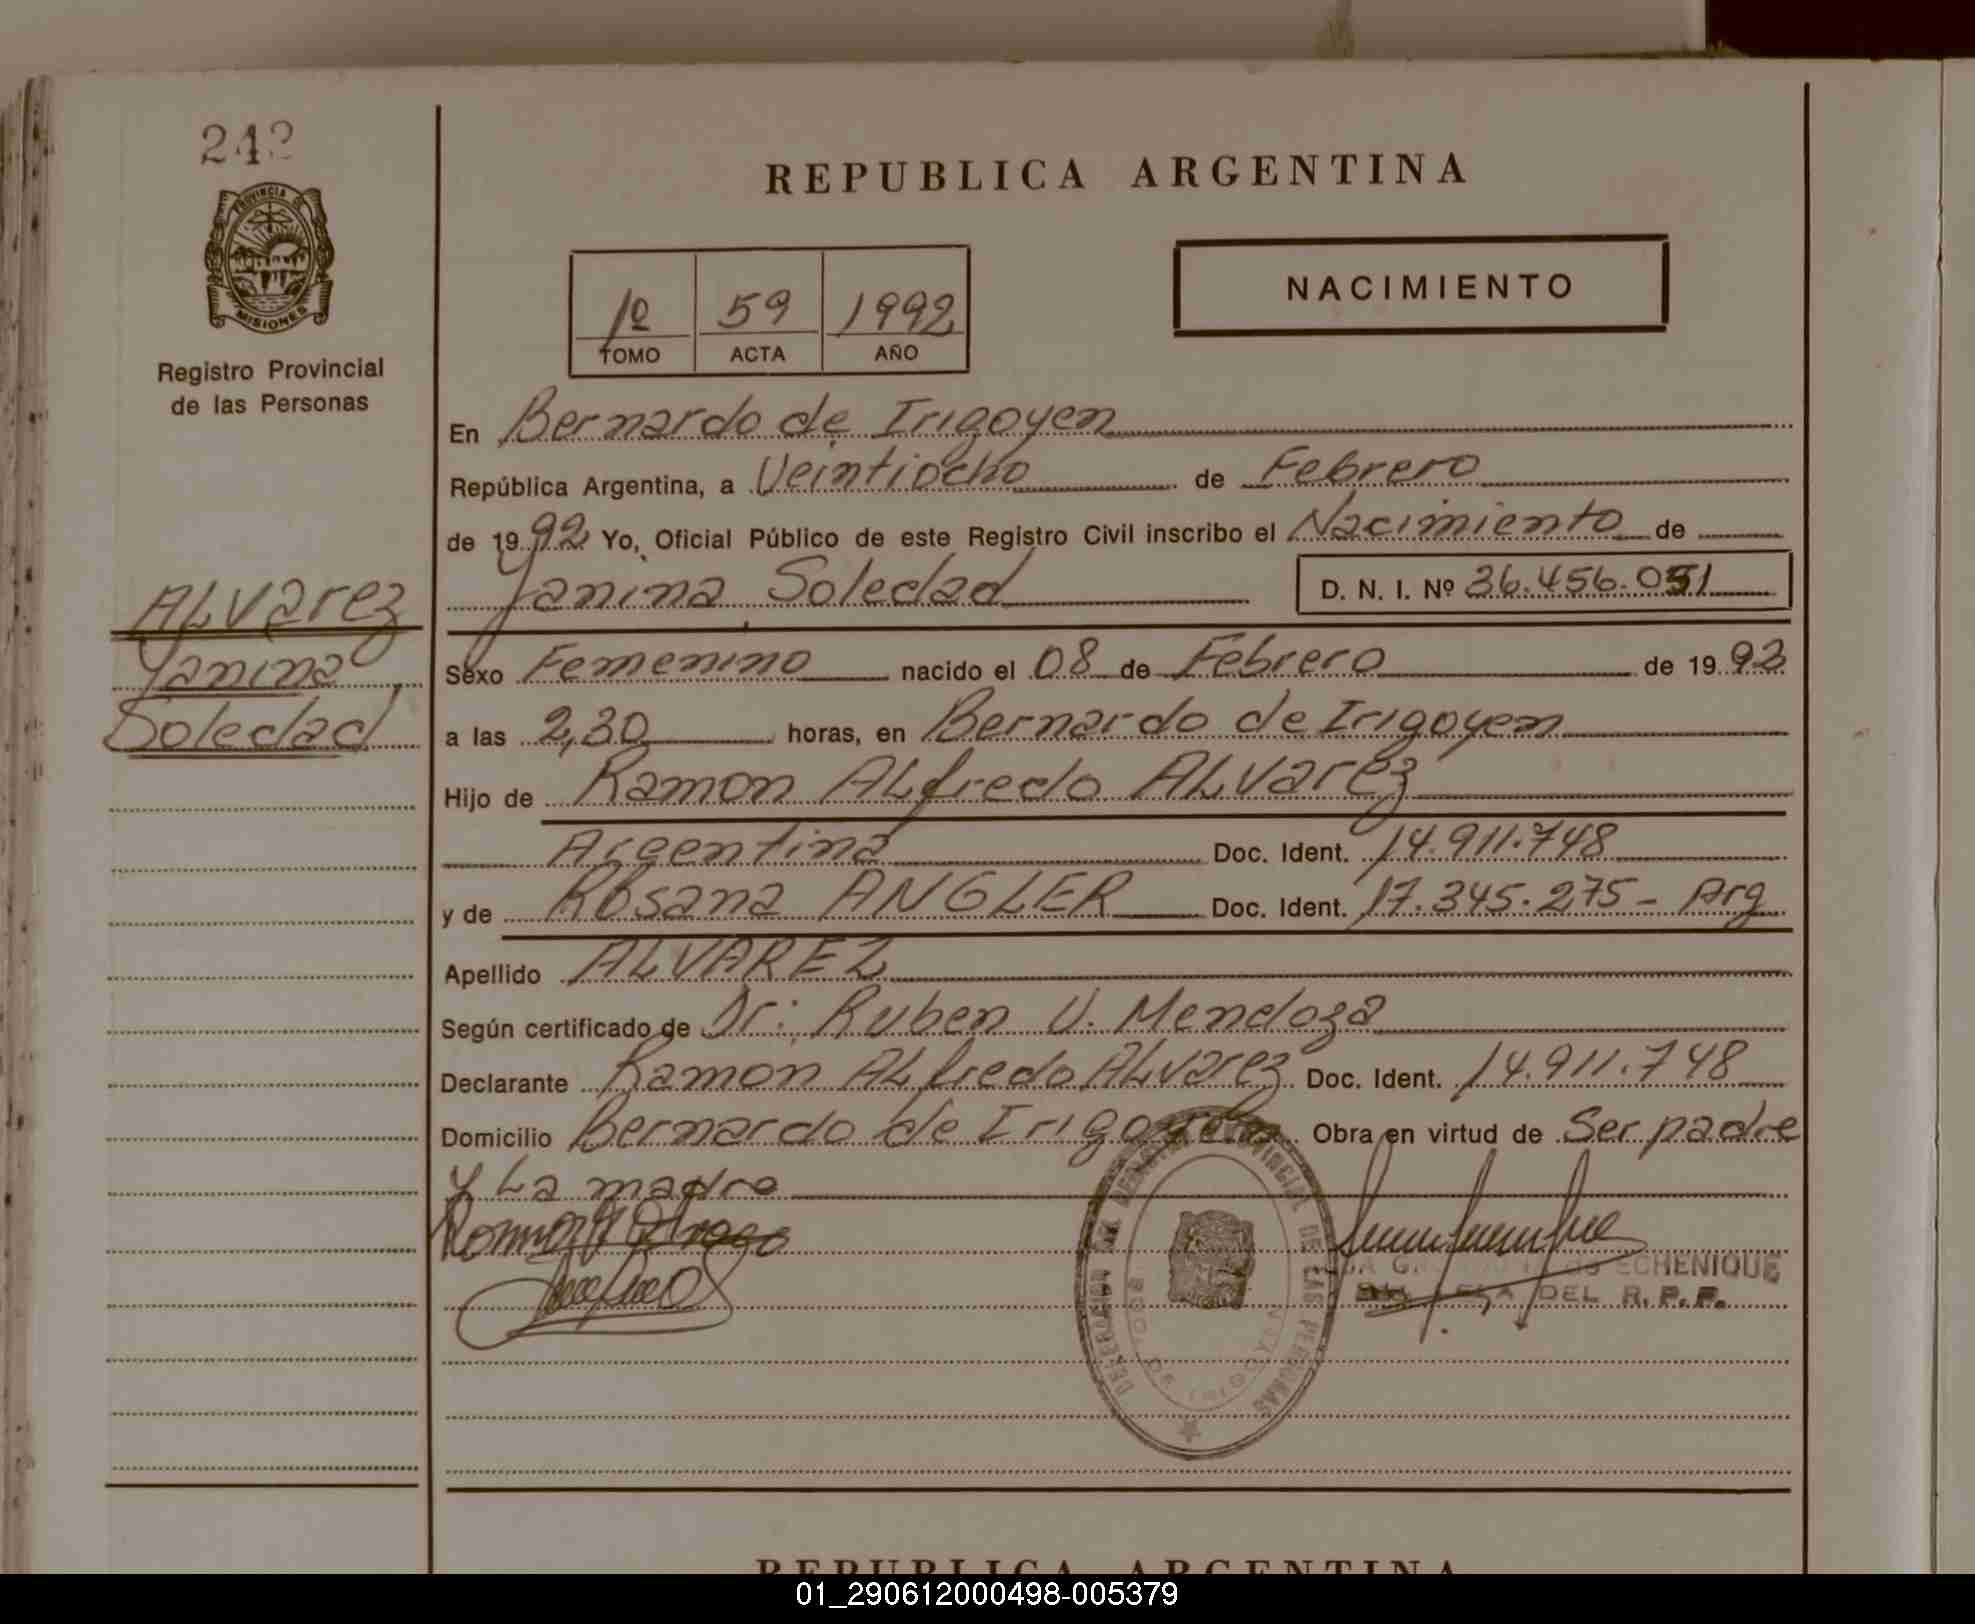 242
PROVINCIA DE
MISIONES
Registro Provincial
de las Personas
ALVarez
Yanina
Soledad
REPUBLICA ARGENTINA
1º 59 1992
TOMO ACTA AÑO
NACIMIENTO
En Bernardo de Irigoyen
República Argentina, a Veintiocho de Febrero
de 1992 Yo, Oficial Público de este Registro Civil inscribo el Nacimiento de
Yanina Soledad D. N. I. Nº 36.456.051
Sexo Femenino nacido el 08 de Febrero de 1992
a las 2,30 horas, en Bernardo de Irigoyen
Hijo de Ramon ALfredo ALVarez
Argentina Doc. Ident. 14.911.748
y de Rosana ANGLER Doc. Ident. 17.345.275 - Arg
Apellido ALVAREZ
Según certificado de Dr: Ruben U. Mendoza
Declarante Ramon ALfredo ALvarez Doc. Ident. 14.911.748
Domicilio Bernardo de Irigoyen Obra en virtud de Ser padre
y La madre
DELEGACION PROVINCIAL DE LAS PERSONAS
DE IRIGOYEN
ECHENIQUE
DEL R.P.P.
REPUBLICA ARGENTINA
01_290612000498-005379